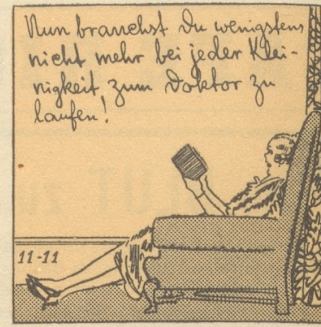 Nun brauchst Du wenigstens
nicht mehr bei jeder Klei-
nigkeit zum Doktor zu
laufen!
11-11